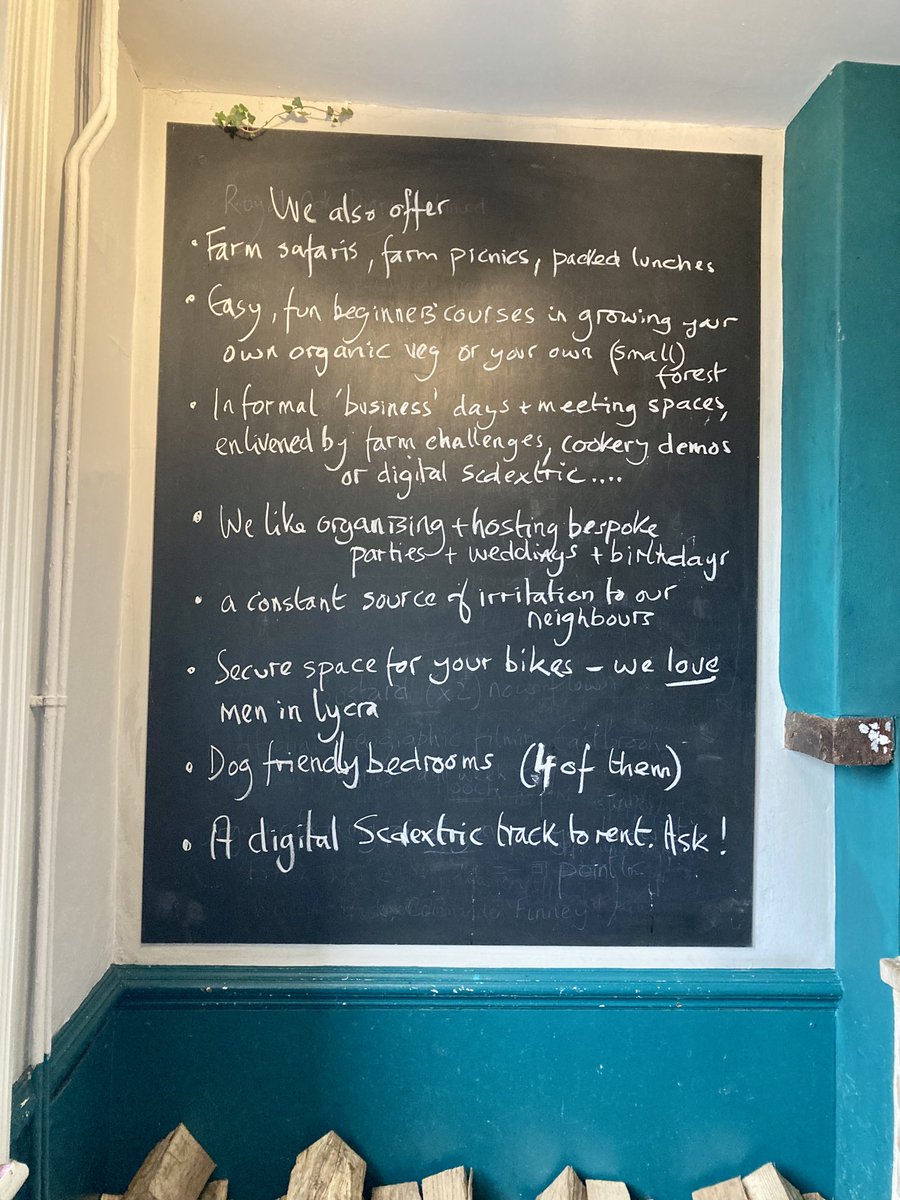 We also offer
• Farm safaris, farm picnics, packed lunches
• Easy, fun beginners courses in growing your
own organic veg or your own (small)
forest
• Informal 'business' days + meeting spaces,
enlivened by farm challenges, cookery demos
or digital scalextric....
• We like organising + hosting bespoke
parties + weddings + birthdays
• a constant source of irritation to our
neighbours
• Secure space for your bikes – we love
men in lycra
• Dog friendly bedrooms (4 of them)
• A digital Scalextric track to rent. Ask!
Finney